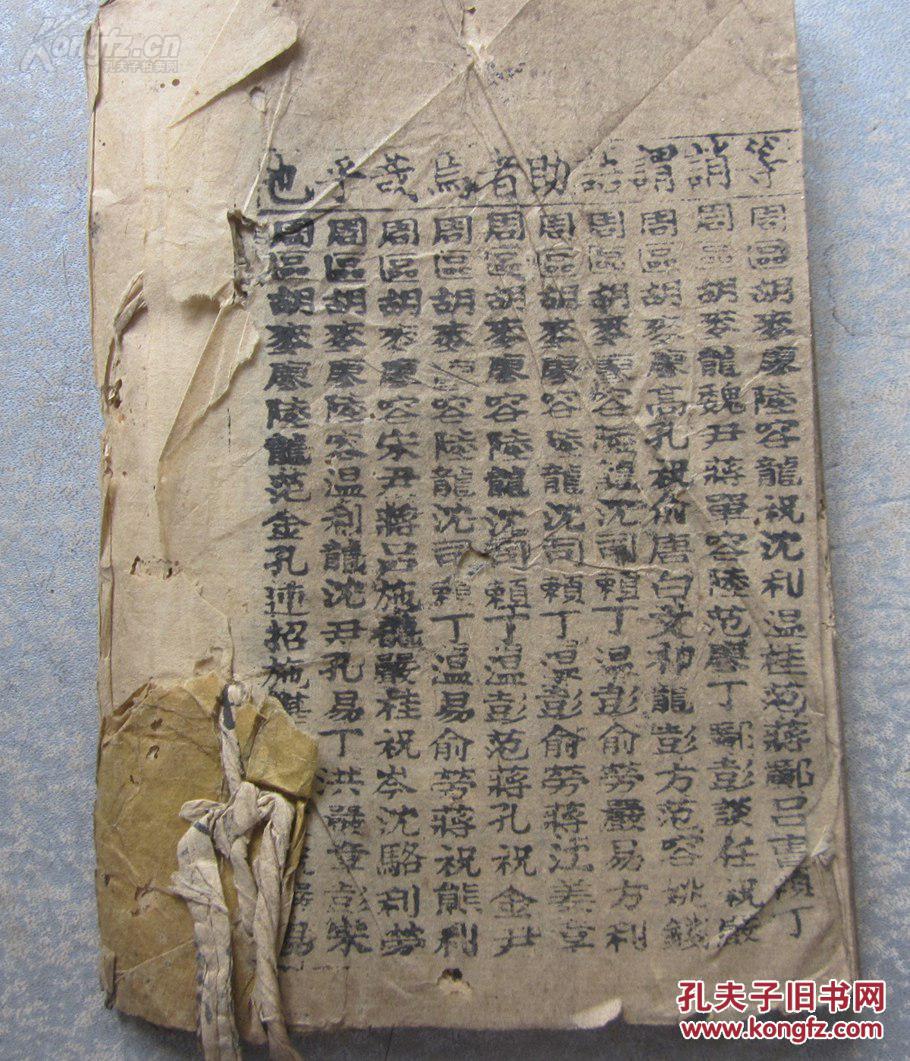 Kongfz.cn
孔夫子旧书网
字 謂 謂 語 助 者 焉 哉 乎 也
周區胡麥廖陸容龍祝沈利温桂范蔣鄺呂曹賴丁
周區胡麥龍魏尹蔣單容陸范廖丁鄺彭談任祝嚴
周區胡麥廖高孔祝俞唐白文和龍彭方范容姚錢
周區胡麥廖容陸 沈司賴丁温彭俞勞嚴易方利
周區胡麥廖容陸龍沈司賴丁温彭俞勞蔣江姜章
周區胡麥廖容陵龍沈司賴丁温彭范蔣孔祝金尹
周區胡麥廖容陵龍沈司賴丁温易俞勞蔣祝熊利
周區胡麥廖容宋尹蔣呂施龍嚴桂祝岑沈駱利勞
周區胡麥廖陸容温利龍沈尹孔易丁洪嚴章彭
周區胡麥廖陸龍范金孔 招施 易
孔夫子旧书网
www.kongfz.com